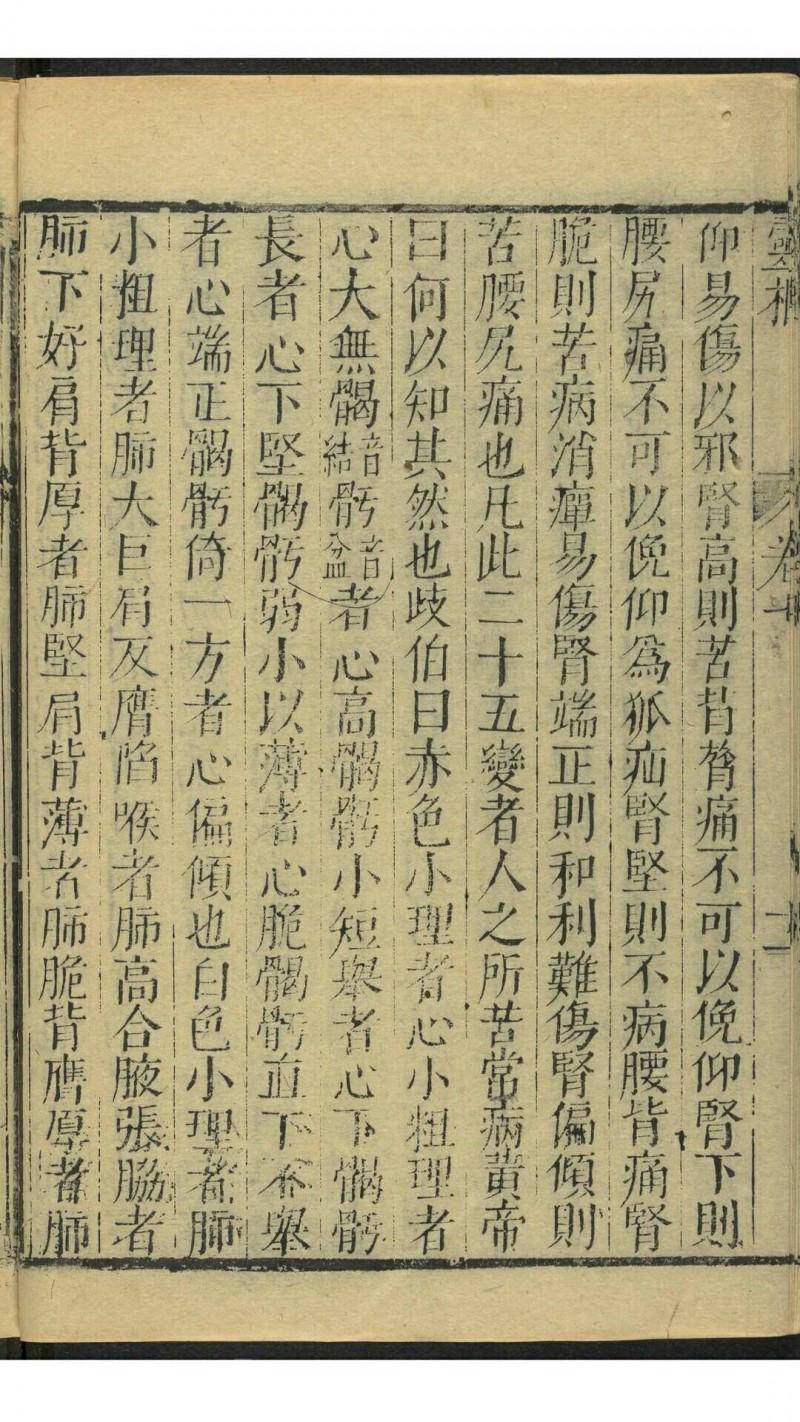 靈樞 卷十 十二
仰易傷以邪腎高則苦背膂痛不可以俛仰腎下則
腰尻痛不可以俛仰爲狐疝腎堅則不病腰背痛腎
脆則苦病消癉易傷腎端正則和利難傷腎偏傾則
苦腰尻痛也凡此二十五變者人之所苦常病黃帝
曰何以知其然也歧伯曰赤色小理者心小粗理者
心大無𩩲音結𩨗音盆者心高𩩲𩨗小短舉者心下𩩲𩨗
長者心下堅𩩲𩨗弱小以薄者心脆𩩲𩨗直下不舉
者心端正𩩲𩨗倚一方者心偏傾也白色小理者肺
小粗理者肺大巨肩反膺陷喉者肺高合腋張脇者
肺下好肩背厚者肺堅肩背薄者肺脆背膺厚者肺